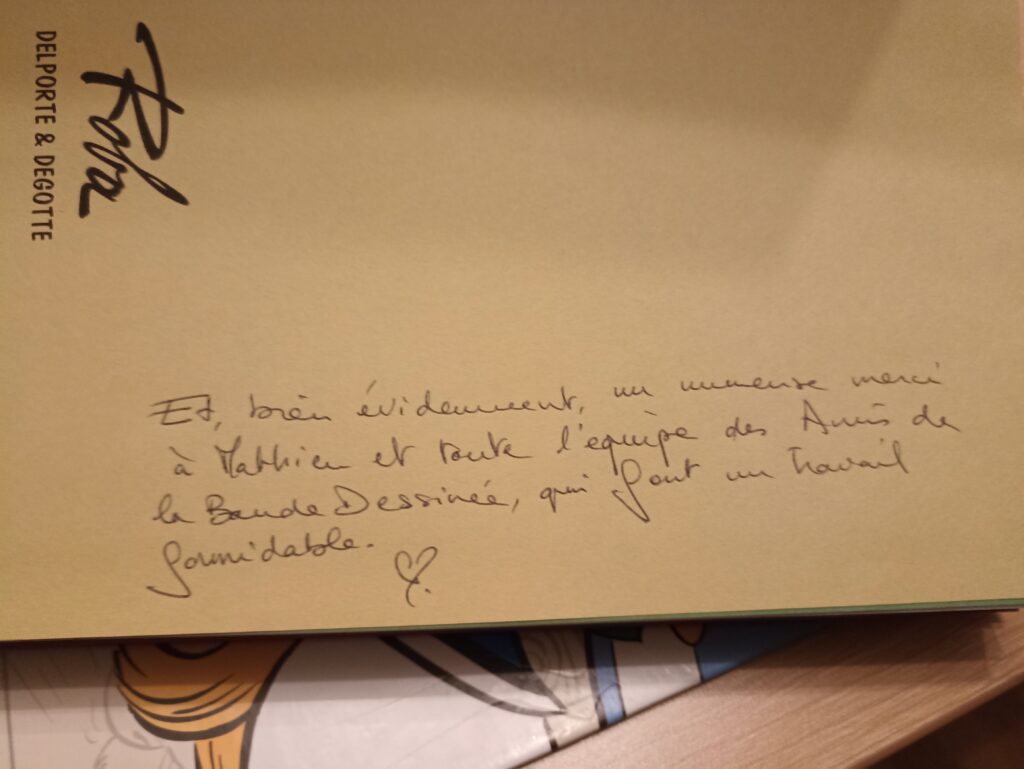 Roba
DELPORTE & DEGOTTE
Et, bien évidemment, un immense merci
à Matthieu et toute l'équipe des Amis de
la Bande Dessinée, qui font un travail
formidable.